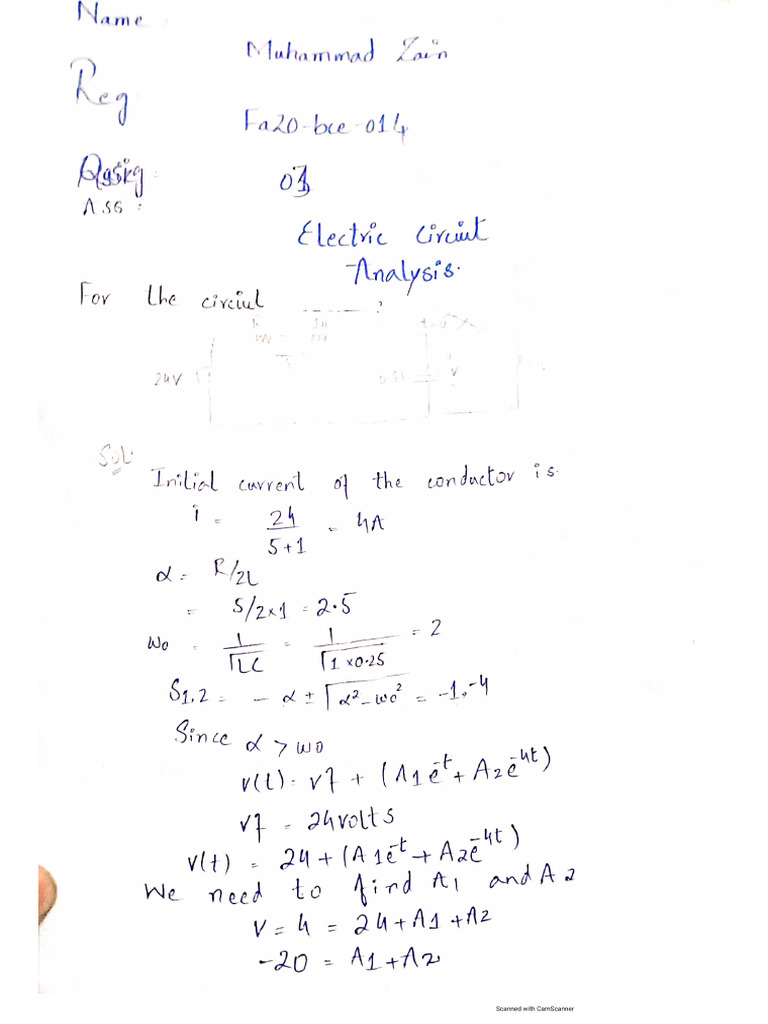 Name
Muhammad Zain
Reg
Fa20-bce-014
Assig:
Ass:
Electric Circiut
Analysis.
For the circiut ------?
24V
V
Sol:
Initial current of the conductor is.
i = 24/(5+1) = 4A
α = R/2L
= 5/2×1 = 2.5
wo = 1/√LC = 1/√1×0.25 = 2
S1,2 = - α ± √α²-wo² = -1,-4
Since α > wo
v(t) = vf + (A1e^-t + A2e^-4t)
vf = 24volts
v(t) = 24 + (A1e^-t + A2e^-4t)
We need to find A1 and A2
V = 4 = 24+A1+A2
-20 = A1+A2
Scanned with CamScanner